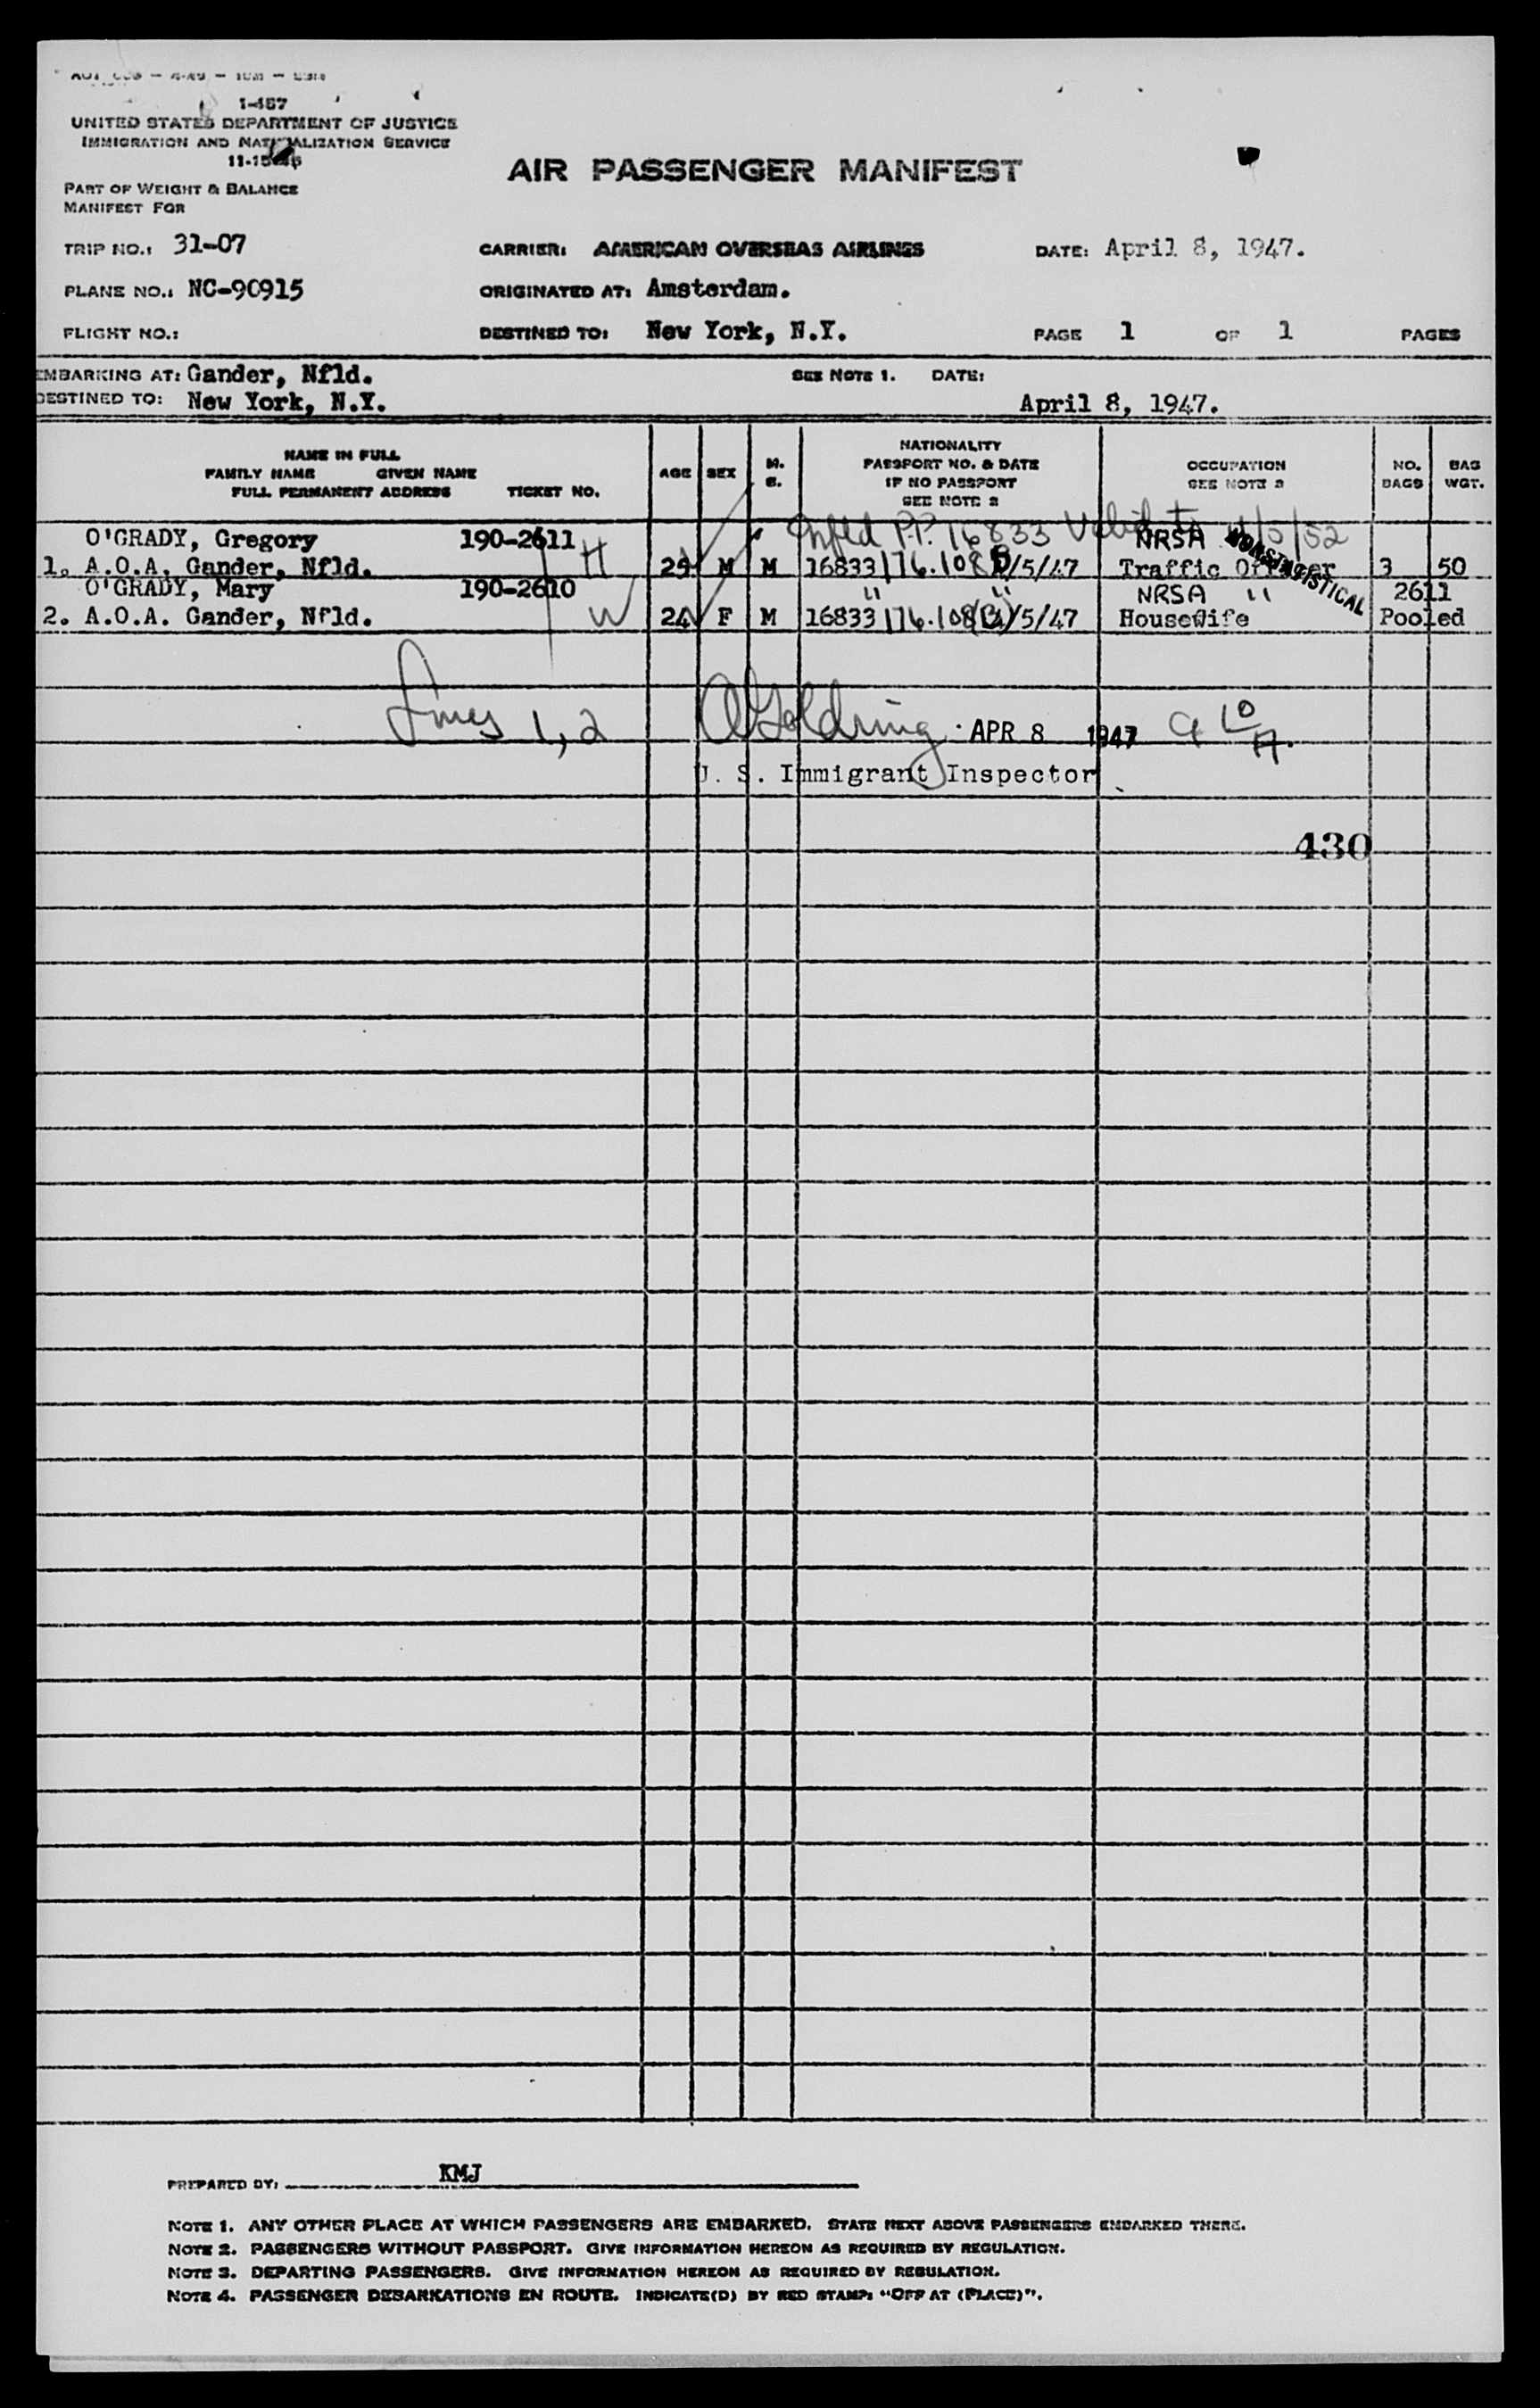 1-457
UNITED STATES DEPARTMENT OF JUSTICE
IMMIGRATION AND NATURALIZATION SERVICE
AIR PASSENGER MANIFEST
PART OF WEIGHT & BALANCE
MANIFEST FOR
TRIP NO.: 31-07 CARRIER: AMERICAN OVERSEAS AIRLINES DATE: April 8, 1947.
PLANE NO.: NC-90915 ORIGINATED AT: Amsterdam.
FLIGHT NO.: DESTINED TO: New York, N.Y. PAGE 1 OF 1 PAGES
EMBARKING AT: Gander, Nfld. SEE NOTE 1. DATE:
DESTINED TO: New York, N.Y. April 8, 1947.
NAME IN FULL
FAMILY NAME GIVEN NAME
FULL PERMANENT ADDRESS TICKET NO.
AGE SEX M. S.
NATIONALITY
PASSPORT NO. & DATE
IF NO PASSPORT
SEE NOTE 2
OCCUPATION
SEE NOTE 3
NO. BAGS
BAG WGT.
Nfld P.P. 16833 Valid to /5/52
O'GRADY, Gregory 190-2611 NRSA NONSTATISTICAL
1. A.O.A. Gander, Nfld. H M M 16833 176.108 /5/47 Traffic Officer 3 50
O'GRADY, Mary 190-2610 " " NRSA " 2611
2. A.O.A. Gander, Nfld. W 24 F M 16833 176.108 /5/47 Housewife Pooled
Lines 1, 2 Goldring APR 8 1947
U. S. Immigrant Inspector
430
PREPARED BY: KMJ
NOTE 1. ANY OTHER PLACE AT WHICH PASSENGERS ARE EMBARKED. STATE NEXT ABOVE PASSENGERS EMBARKED THERE.
NOTE 2. PASSENGERS WITHOUT PASSPORT. GIVE INFORMATION HEREON AS REQUIRED BY REGULATION.
NOTE 3. DEPARTING PASSENGERS. GIVE INFORMATION HEREON AS REQUIRED BY REGULATION.
NOTE 4. PASSENGER DEBARKATIONS EN ROUTE. INDICATE(D) BY RED STAMP: "OFF AT (PLACE)".